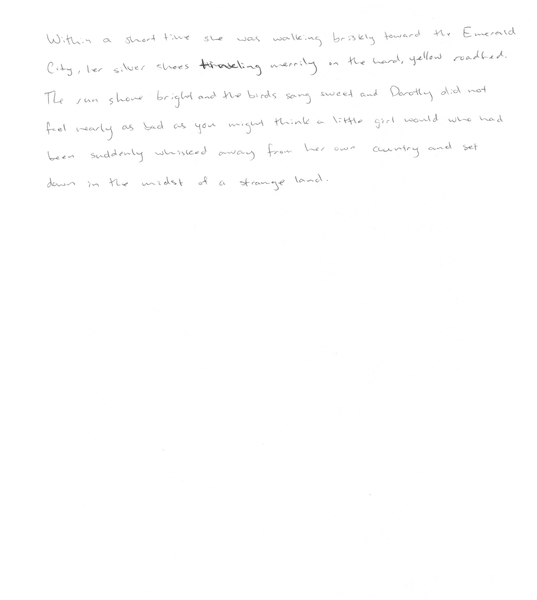 Within a short time she was walking briskly toward the Emerald
City, her silver shoes traveling merrily on the hard, yellow roadbed.
The sun shone bright and the birds sang sweet and Dorothy did not
feel nearly as bad as you might think a little girl would who had
been suddenly whisked away from her own country and set
down in the midst of a strange land.